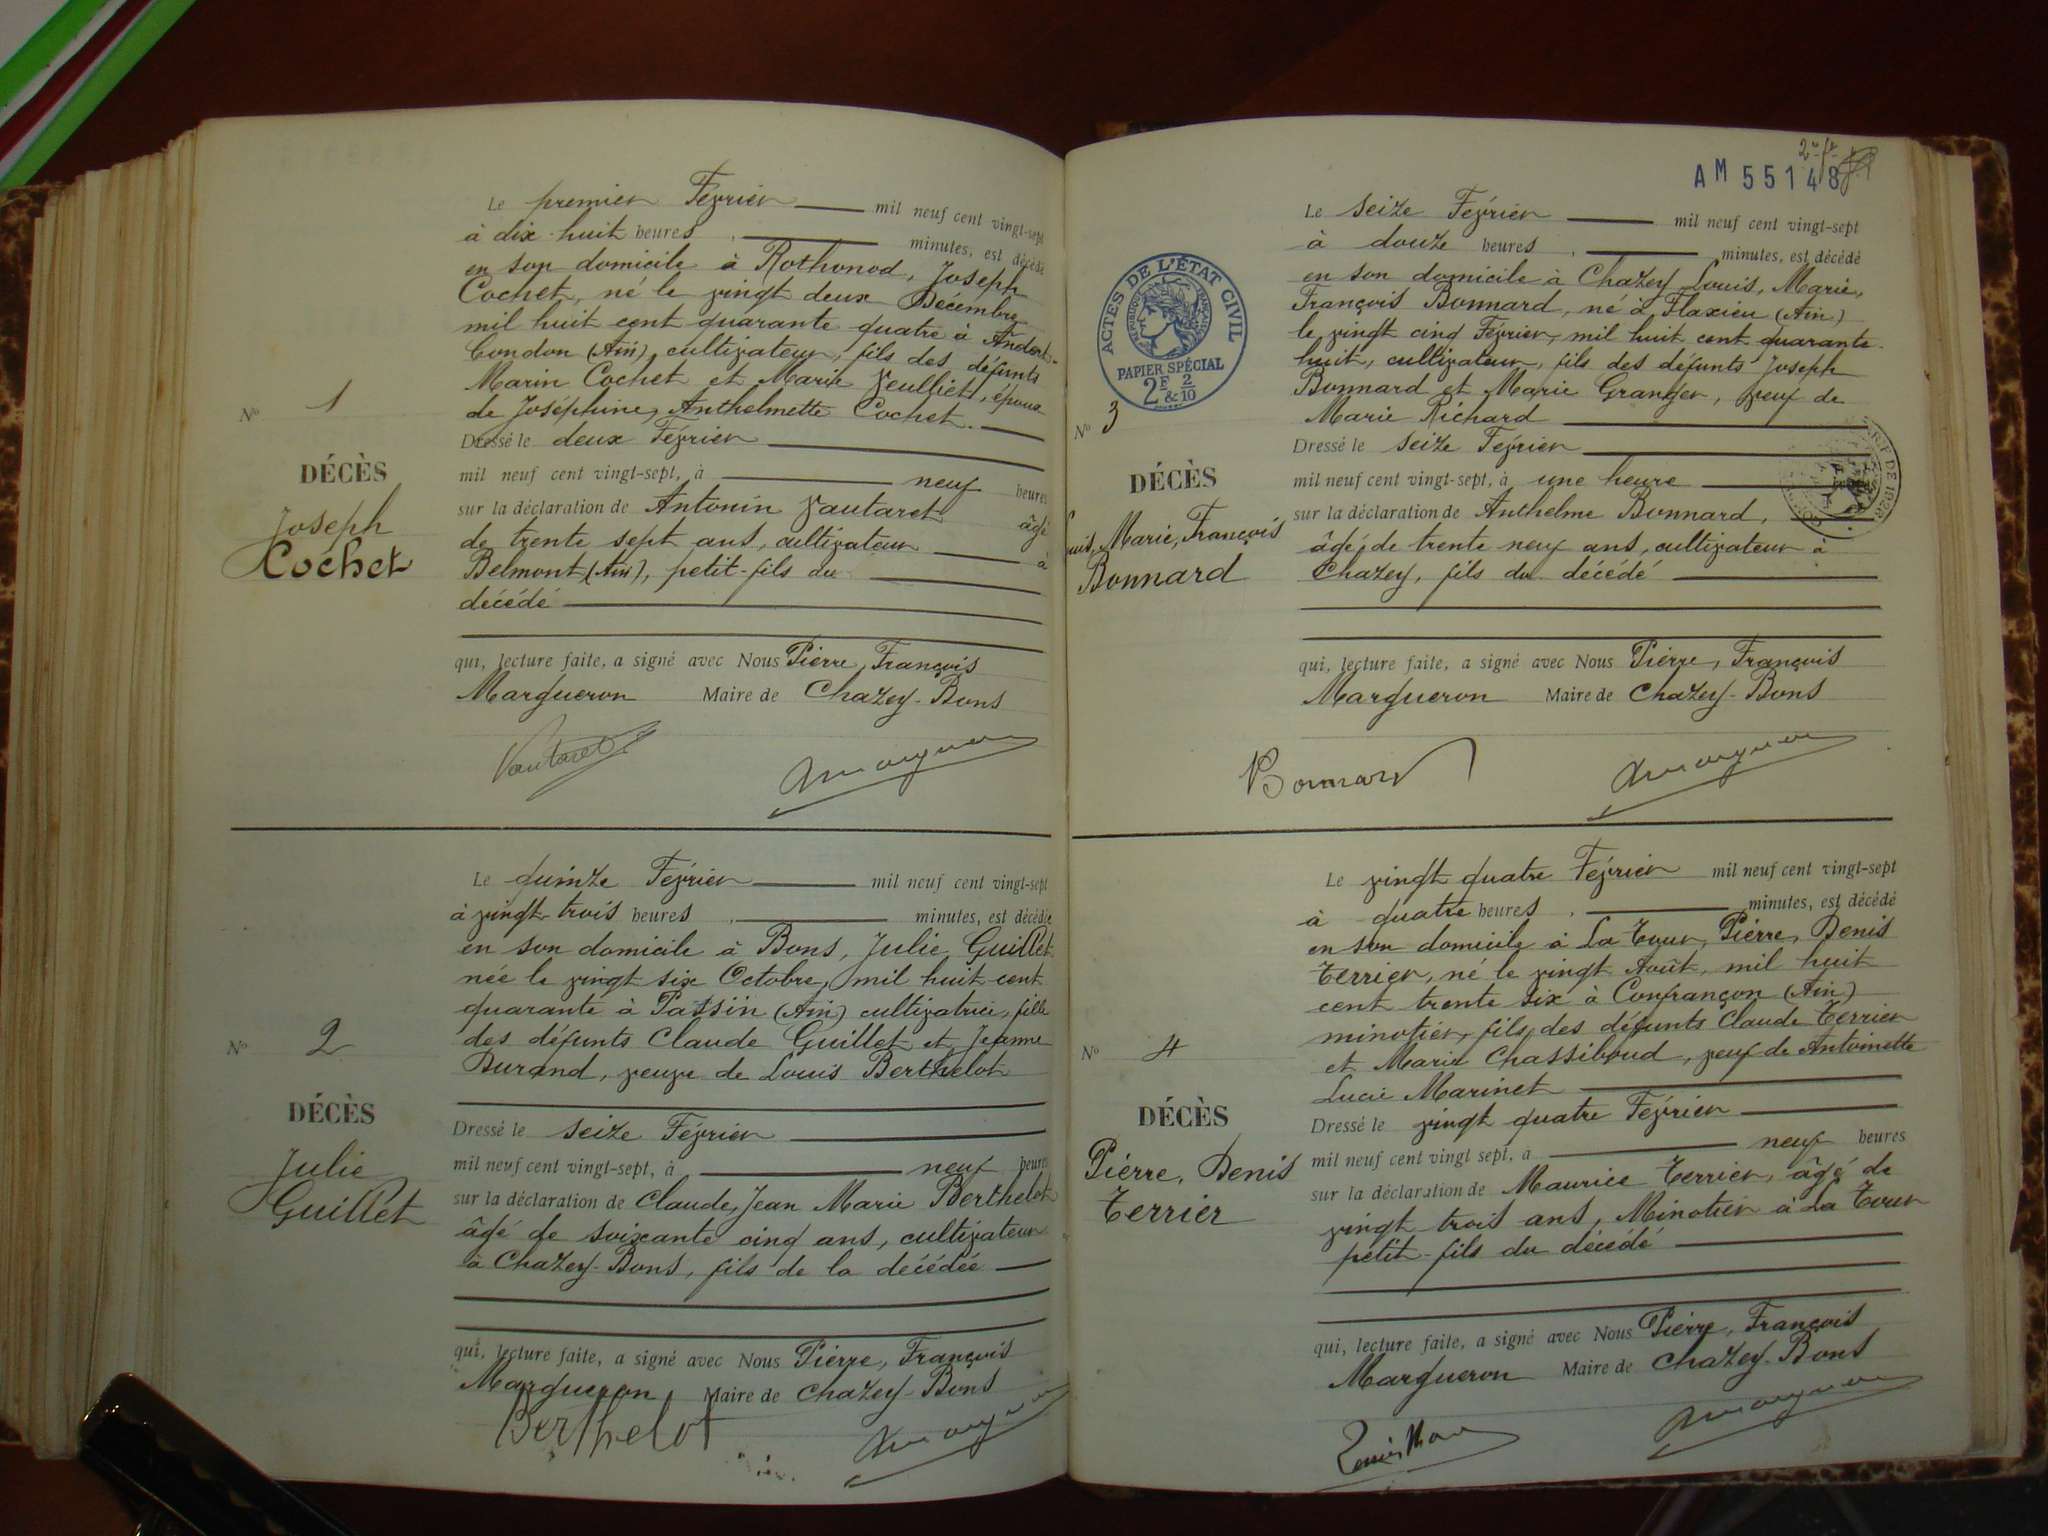 Le premier Février mil neuf cent vingt-sept
à dix-huit heures, minutes, est décédé
en son domicile à Rothonod, Joseph
Cochet, né le vingt deux Décembre
mil huit cent quarante quatre à Andert-
Condon (Ain), cultivateur, fils des défunts
Marin Cochet et Marie Veulliet, époux
de Joséphine, Anthelmette Cochet.
Dressé le deux Février
mil neuf cent vingt-sept, à neuf heures
sur la déclaration de Antonin Vautaret âgé
de trente sept ans, cultivateur à
Belmont (Ain), petit-fils du
décédé
qui, lecture faite, a signé avec Nous Pierre, François
Margueron Maire de Chazey-Bons
Vautaret
Margueron
No 1
DÉCÈS
Joseph
Cochet
Le quinze Février mil neuf cent vingt-sept
à vingt-trois heures, minutes, est décédée
en son domicile à Bons, Julie Guillet
née le vingt six Octobre, mil huit cent
quarante à Passin (Ain) cultivatrice, fille
des défunts Claude Guillet et Jeanne
Durand, veuve de Louis Berthelot
Dressé le seize Février
mil neuf cent vingt-sept, à neuf heures
sur la déclaration de Claude, Jean Marie Berthelot
âgé de soixante cinq ans, cultivateur
à Chazey-Bons, fils de la décédée
qui, lecture faite, a signé avec Nous Pierre, François
Margueron, Maire de Chazey-Bons
Berthelot
Margueron
No 2
DÉCÈS
Julie
Guillet
AM 55148
ACTES DE L'ÉTAT CIVIL
RÉPUBLIQUE FRANÇAISE
PAPIER SPÉCIAL
2F & 2/10
Le seize Février mil neuf cent vingt-sept
à douze heures, minutes, est décédé
en son domicile à Chazey Louis, Marie,
François Bonnard, né à Flaxieu (Ain)
le vingt cinq Février, mil huit cent quarante-
huit, cultivateur, fils des défunts Joseph
Bonnard et Marie Granger, veuf de
Marie Richard
Dressé le seize Février
mil neuf cent vingt-sept, à une heure
sur la déclaration de Anthelme Bonnard,
âgé de trente neuf ans, cultivateur à
Chazey, fils du décédé
qui, lecture faite, a signé avec Nous Pierre, François
Margueron Maire de Chazey-Bons
Bonnard
Margueron
No 3
DÉCÈS
uis, Marie, François
Bonnard
DE 1928
Le vingt quatre Février mil neuf cent vingt-sept
à quatre heures, minutes, est décédé
en son domicile à La Tour, Pierre, Denis
Terrier, né le vingt Août, mil huit
cent trente six à Confrançon (Ain)
minotier, fils des défunts Claude Terrier
et Marie Chassiboud, veuf de Antoinette
Lucie Marinet
Dressé le vingt quatre Février
mil neuf cent vingt sept, à neuf heures
sur la déclaration de Maurice Terrier, âgé de
vingt-trois ans, Minotier à La Tour
petit-fils du décédé
qui, lecture faite, a signé avec Nous Pierre, François
Margueron Maire de Chazey-Bons
Margueron
No 4
DÉCÈS
Pierre, Denis
Terrier